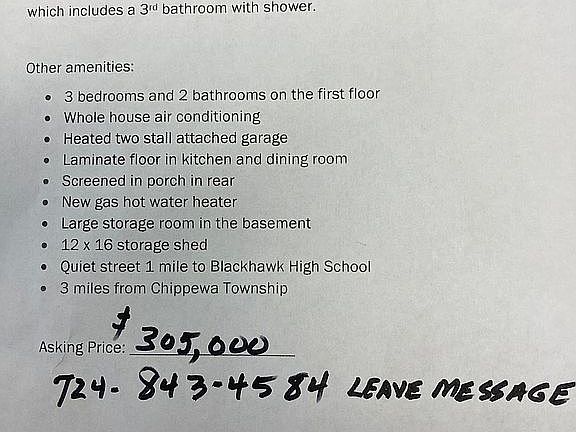 which includes a 3rd bathroom with shower.
Other amenities:
• 3 bedrooms and 2 bathrooms on the first floor
• Whole house air conditioning
• Heated two stall attached garage
• Laminate floor in kitchen and dining room
• Screened in porch in rear
• New gas hot water heater
• Large storage room in the basement
• 12 x 16 storage shed
• Quiet street 1 mile to Blackhawk High School
• 3 miles from Chippewa Township
Asking Price: $305,000
724-843-4584 LEAVE MESSAGE